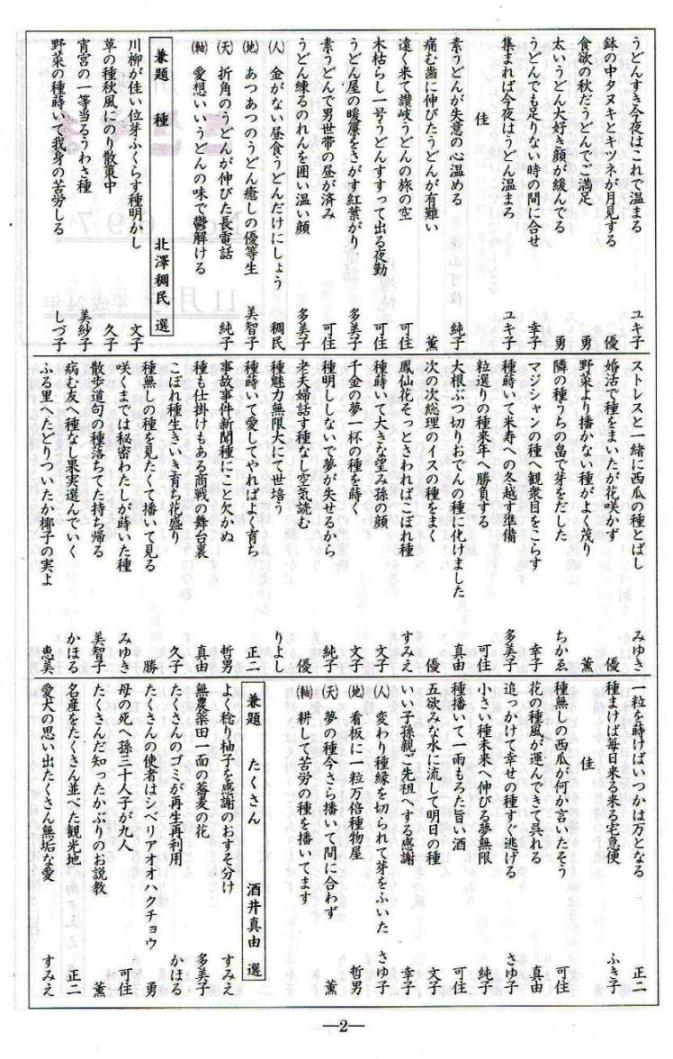 うどんすき今夜はこれで温まる ユキ子
鉢の中タヌキとキツネが月見する 優
食欲の秋だうどんでご満足 勇
太いうどん大好き顔が緩んでる 勇
うどんでも足りない時の間に合せ 幸子
集まれば今夜はうどん温まろ ユキ子
佳
素うどんが失意の心温める 純子
痛む歯に伸びたうどんが有難い 薫
遠く来て讃岐うどんの旅の空 可住
木枯らし一号うどんすすって出る夜勤 可住
うどん屋の暖簾をさがす紅葉がり 多美子
素うどんで男世帯の昼が済み 可住
うどん練るのれんを囲い温い顔 多美子
㈟ 金がない昼食うどんだけにしょう 稠民
㈷ あつあつのうどん癒しの優等生 美智子
(天) 折角のうどんが伸びた長電話 純子
(軸) 愛想いいうどんの味で鬱解ける
兼題 種 北澤稠民 選
川柳が佳い位芽ふくらす種明かし 文子
草の種秋風にのり散策中 久子
宵宮の一等当るうわさ種 美紗子
野菜の種蒔いて我身の苦労しる しづ子
ストレスと一緒に西瓜の種とばし みゆき
婚活で種をまいたが花咲かず 優
野菜より播かない種がよく茂り 薫
隣の種うちの畠で芽をだした ちかゑ
マジシャンの種へ観衆目をこらす 幸子
種蒔いて米寿への冬越す準備 多美子
粒選りの種来年へ勝負する 可住
大根ぶつ切りおでんの種に化けました 真由
次の次総理のイスの種をまく 優
鳳仙花そっとさわればこぼれ種 すみえ
種蒔いて大きな望み孫の顔 文子
千金の夢一杯の種を蒔く 文子
種明ししないで夢が失せるから 純子
老夫婦話す種なし空気読む 優
種魅力無限大にて世培う りよし
種蒔いて愛してやればよく育ち 正二
事故事件新聞種にこと欠かぬ 哲男
種も仕掛けもある商戦の舞台裏 真由
こぼれ種生きいき育ち花盛り 久子
種無しの種を見たくて播いて見る 勝
咲くまでは秘密わたしが蒔いた種 みゆき
散歩道句の種落ちてた持ち帰る 美智子
病む友へ種なし果実選んでいく かほる
ふる里へたどりついたか椰子の実よ 恵美
一粒を蒔けばいつかは万となる 正二
種まけば毎日来る来る宅急便 ふき子
佳
種無しの西瓜が何か言いたそう 可住
花の種風が運んできて呉れる 真由
追っかけて幸せの種すぐ逃げる さゆ子
小さい種未来へ伸びる夢無限 純子
種播いて一雨もろた旨い酒 可住
五欲みな水に流して明日の種 文子
いい子孫親ご先祖へする感謝 幸子
㈟ 変わり種縁を切られて芽をふいた さゆ子
㈷ 看板に一粒万倍種物屋 哲男
(天) 夢の種今さら播いて間に合わず 薫
(軸) 耕して苦労の種を播いてます
兼題 たくさん 酒井真由 選
よく稔り柚子を感謝のおすそ分け すみえ
無農薬田一面の蕎麦の花 多美子
たくさんのゴミが再生再利用 かほる
たくさんの使者はシベリアオオハクチョウ 勇
母の死へ孫三十人子が九人 可住
たくさんだ知ったかぶりのお説教 薫
名産をたくさん並べた観光地 正二
愛犬の思い出たくさん無垢な愛 すみえ
—2—